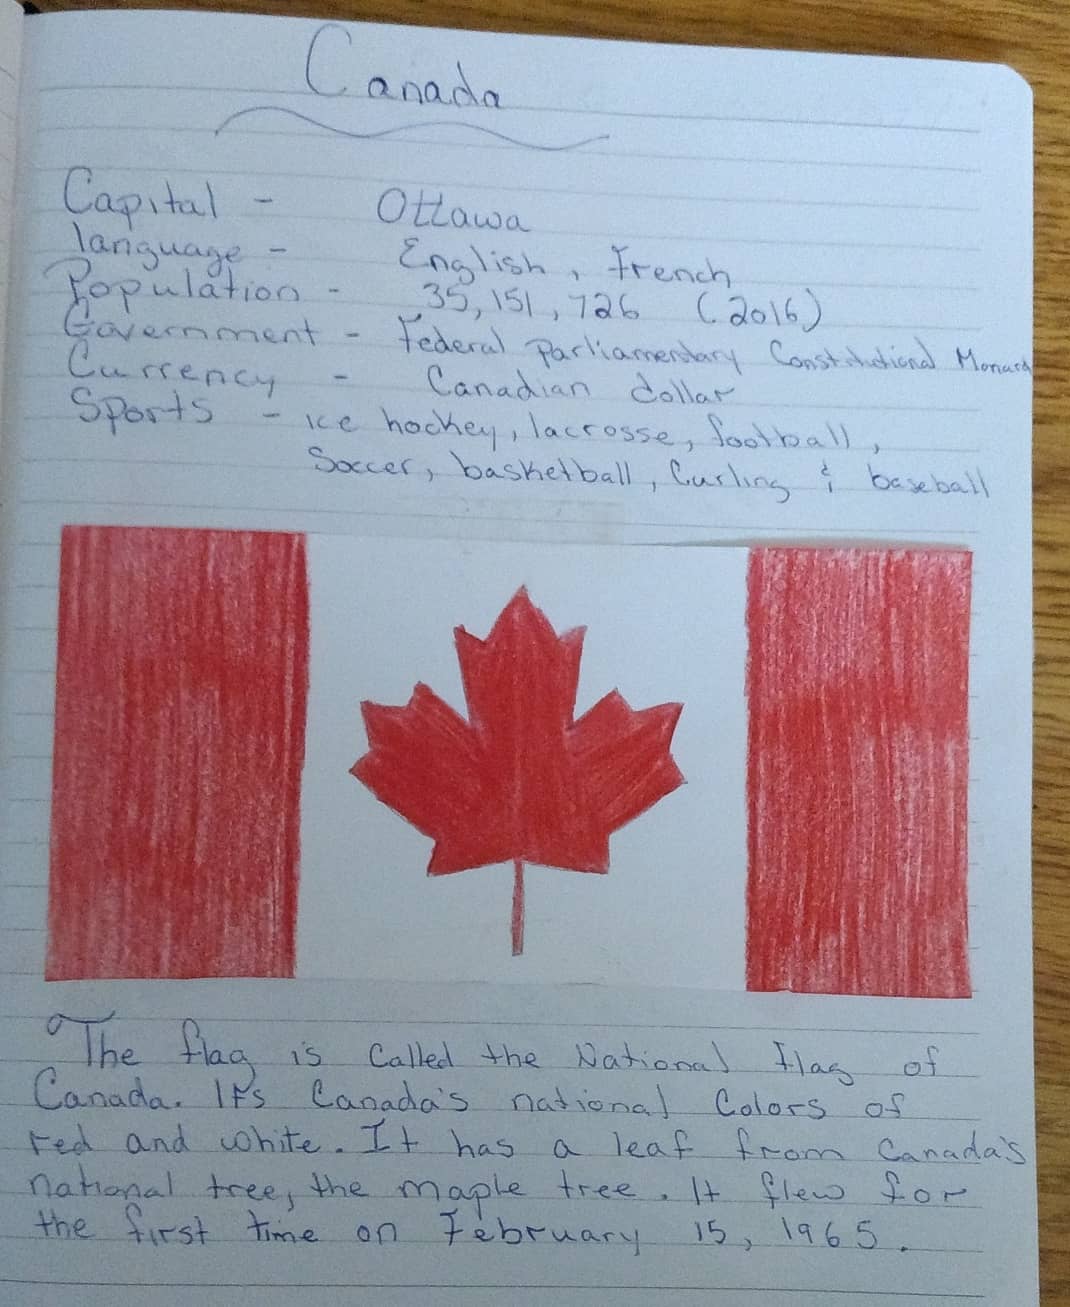 Canada
Capital - Ottawa
language - English, French
Population - 35,151,726 (2016)
Government - Federal Parliamentary Constitutional Monarch
Currency - Canadian dollar
Sports - ice hockey, lacrosse, football,
Soccer, basketball, Curling & baseball
The flag is Called the National Flag of
Canada. It's Canada's national Colors of
red and white. It has a leaf from Canada's
national tree, the maple tree. It flew for
the first time on February 15, 1965.